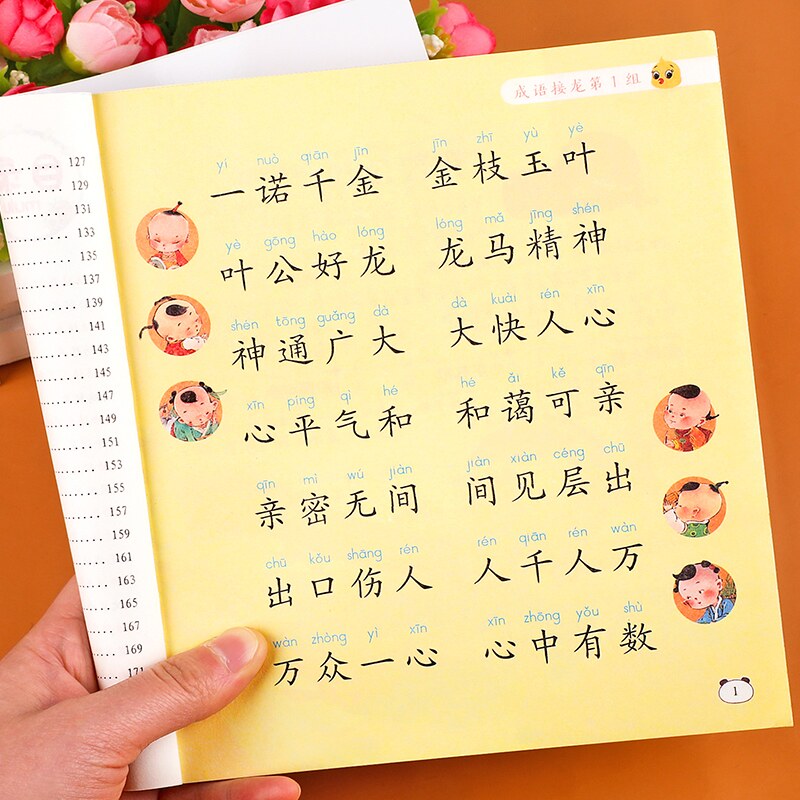 成语接龙第1组
yí nuò qiān jīn jīn zhī yù yè
一诺千金 金枝玉叶
yè gōng hào lóng lóng mǎ jīng shén
叶公好龙 龙马精神
shén tōng guǎng dà dà kuài rén xīn
神通广大 大快人心
xīn píng qì hé hé ǎi kě qīn
心平气和 和蔼可亲
qīn mì wú jiàn jiàn xiàn céng chū
亲密无间 间见层出
chū kǒu shāng rén rén qiān rén wàn
出口伤人 人千人万
wàn zhòng yì xīn xīn zhōng yǒu shù
万众一心 心中有数
1
127
129
131
133
135
137
139
141
143
145
147
149
151
153
155
157
159
161
163
165
167
169
171